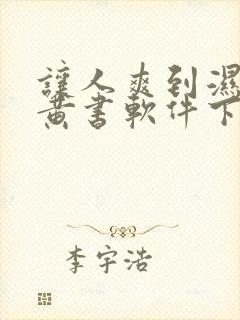 讓人爽到濕
黃書軟件下
李宇浩